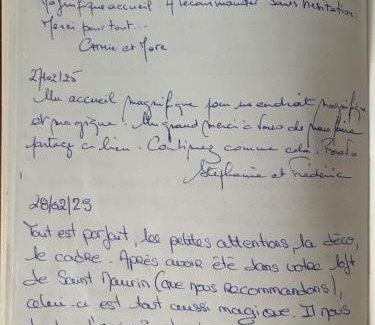 Magnifique accueil. A recommander sans hésitation.
Merci pour tout...
et Marc
27/02/25
Un accueil magnifique pour un endroit magnifique
et magique. Un grand merci à vous de nous faire
partager ce lieu. Continuez comme cela. Bravo
Stéphanie et Frédéric
28/02/25
Tout est parfait, les petites attentions, la déco,
le cadre. Après avoir été dans votre loft
de Saint Maurin (que nous recommandons),
celui-ci est tout aussi magique. Il nous